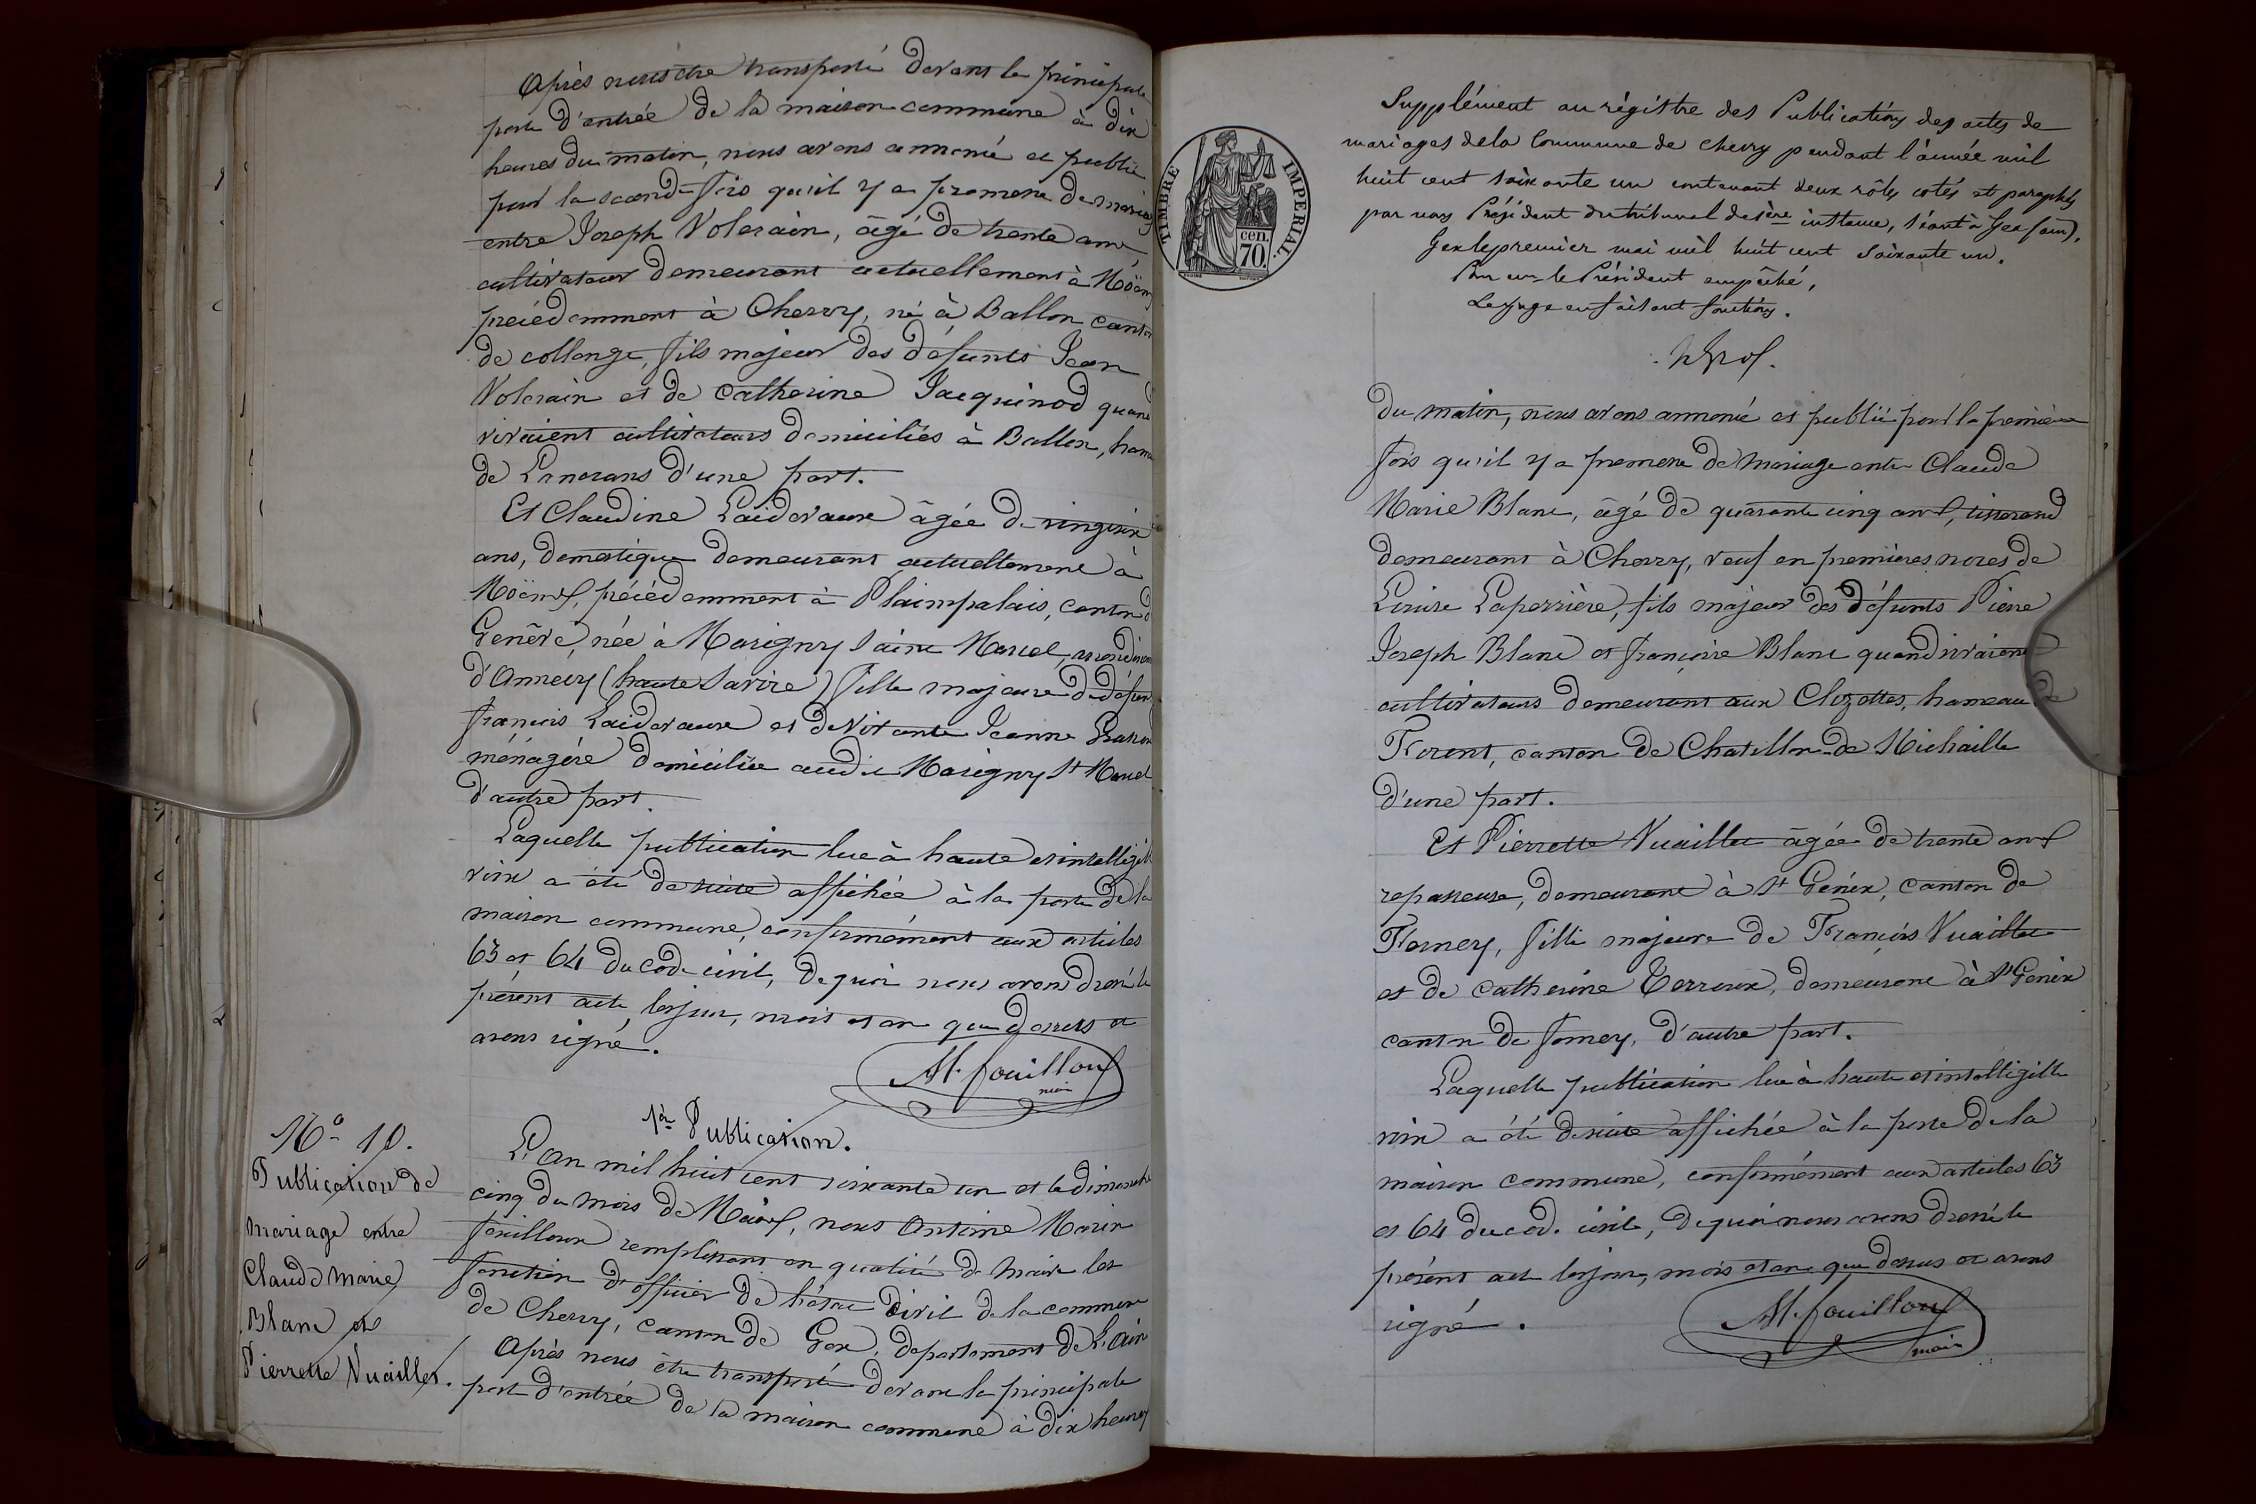 Après nous être transporté devant la principale
porte d'entrée de la maison commune à dix
heures du matin, nous avons annoncé et publié
pour la seconde fois qu'il y a promesse de mariage
entre Joseph Volerain, âgé de trente ans
cultivateur demeurant actuellement à Möens
précédemment à Chevry, né à Ballon canton
de collonge, fils majeur des défunts Jean
Volerain et de Catherine Jacquinod quand
vivaient cultivateurs domiciliés à Ballon, hameau
de Lancrans d'une part.
Et Claudine Laidevaux âgée de vingtsix
ans, domestique demeurant actuellement à
Möens, précédemment à Plaimpalais, canton de
Genève, née à Marigny Saint Marcel, arrondissement
d'Annecy (haute Savoie) fille majeure de défunt
françois Laidevaux et de vivante Jeanne
ménagère domiciliée audit Marigny St Marcel
d'autre part.
Laquelle publication lue à haute et intelligible
voix a été de suite affichée à la porte de la
maison commune, conformément aux articles
63 et 64 du code civil, de quoi nous avons dressé le
présent acte les jour, mois et an que dessus et
avons signé.
A M. fouilloux
maire
No 10.
Publication de
mariage entre
Claude Marie
Blanc et
Pierrette Vuaillet.
1ère Publication.
L'an mil huit cent soixante un et le dimanche
cinq du mois de Mai, nous Antoine Marie
fouilloux remplissant en qualité de maire les
fonction d'officier de l'état Civil de la commune
de Chevry, canton de Gex, département de L'Ain
Après nous être transporté devant la principale
porte d'entrée de la maison commune à dix heures
TIMBRE IMPERIAL.
70 cen.
Supplément au régistre des Publications des actes de
mariages de la Commune de Chevry pendant l'année mil
huit cent soixante un contenant deux rôles cotés et paraphés
par nous Président du tribunal de 1ère instance, séant à Gex (ain).
Gex le premier mai mil huit cent soixante un.
Pour mr le Président empêché,
Le juge en faisant fonctions.
du matin, nous avons annoncé et publié pour la première
fois qu'il y a promesse de mariage entre Claude
Marie Blanc, âgé de quarante cinq ans, tisserand
demeurant à Chevry, veuf en premières noces de
Louise Laperrière, fils majeur des défunts Pierre
Joseph Blanc et françoise Blanc quand vivaient
cultivateurs demeurant aux Clozettes, hameau de
Forent, canton de Chatillon de Michaille
d'une part.
Et Pierrette Vuaillet âgée de trente ans
repasseuse, demeurant à St Genix, canton de
Ferney, fille majeure de François Vuaillet
et de Catherine Terroux, demeurant à St Genix
canton de ferney, d'autre part.
Laquelle publication lue à haute et intelligible
voix a été de suite affichée à la porte de la
maison commune, conformément aux articles 63
et 64 du cod. civil, de quoi nous avons dressé le
présent acte les jour, mois et an que dessus et avons
signé.
A M. fouilloux
maire